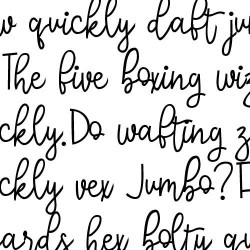 w quickly daft ju
The five boxing wiz
ckly. Do wafting z
ckly vex Jumbo? F
ards hex bolty q